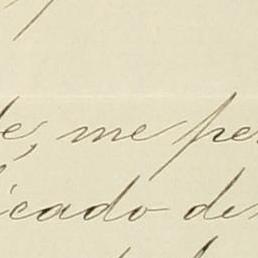 de, me pe
icado de